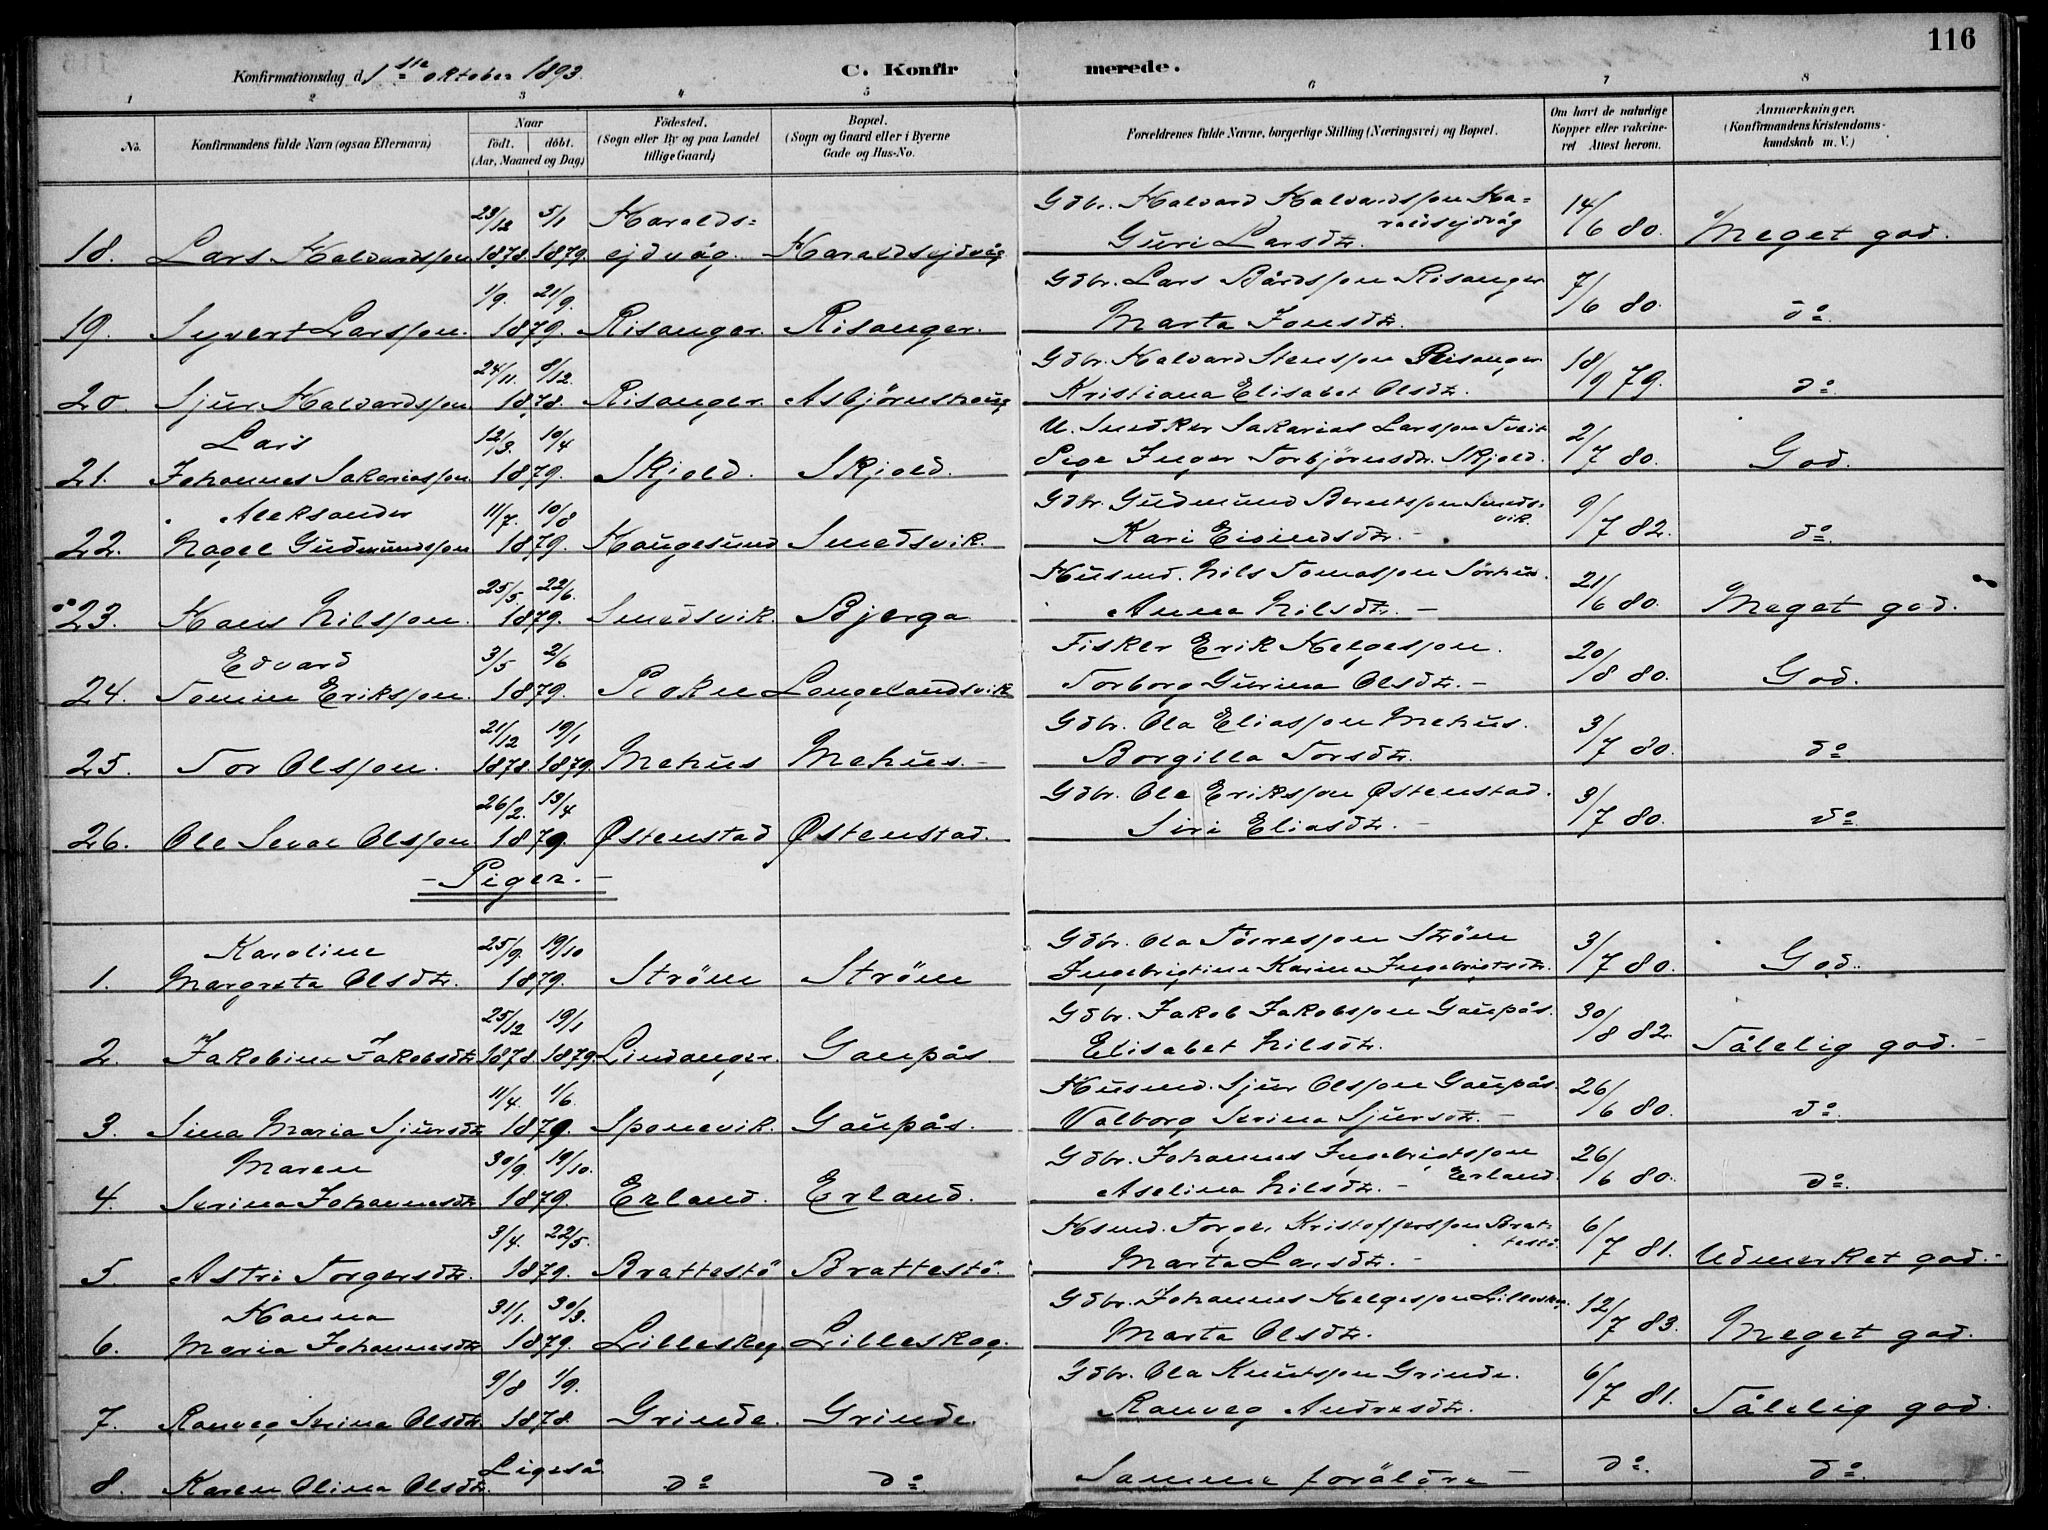 116
Konfirmationsdag d. 1ste oktober 1893. C. Konfirmerede.
1 2 3 4 5 6 7 8
No. Konfirmandens fulde Navn (ogsaa Efternavn) Naar født. døbt. (Aar, Maaned og Dag) Fødested. (Sogn eller By og paa Landet tillige Gaard) Bopæl. (Sogn og Gaard eller i Byerne Gade og Hus-No. Forældrenes fulde Navne, borgerlige Stilling (Næringsvei) og Bopæl. Om havt de naturlige Kopper eller vakcineret Attest herom. Anmærkninger. (Konfirmandens Kristendomskundskab m. V.)
23/12 5/1 Haralds= Gdbr. Halvard Halvardsson Ha= 14/6 80.
18. Lars Halvardsson 1878. 1879. ejdvåg. Haraldsejdvåg Guri Larsdtr. raldsejdvåg Meget god.
1/9. 21/9. Gdbr. Lars Bårdsson Risanger 7/6 80.
19. Syvert Larsson. 1879. Risanger. Risanger. Marta Jonsdtr. do.
24/11. 8/12. Gdbr. Halvard Stensson Risanger 18/9 79.
20. Sjur Halvardsson 1878. Risanger. Asbjørnshaug Kristiana Elisabet Olsdtr. do.
Lars 12/3. 10/4 U. Snedker Sakarias Larsson Tveit 2/7 80.
21. Johannes Sakariasson 1879. Skjold. Skjold. Pige Inger Torbjørnsdtr. Skjold. God.
Aleksander 11/7. 10/8 Gdbr. Gudmund Berentsson Smeds= 9/7 82.
22. Nagel Gudmundsson 1879. Haugesund Smedsvik. Kari Eivindsdtr. vik. do.
25/5. 22/6. Husmd. Nils Tomasson Sørhus. 21/6 80.
23. Hans Nilsson. 1879. Smedsvik. Bjerga Anna Nilsdtr. Meget god.
Edvard 3/5 2/6 Fisker Erik Helgesson. 20/8 80.
24. Tomin Eriksson. 1879. Langelandsvik Torborg Gurina Olsdtr. God.
21/12 19/1 Gdbr. Ola Eliasson Mehus. 3/7 80.
25. Tor Olsson. 1878. 1879. Mehus Mehus. Borgilla Torsdtr. do
26/2. 13/4 Gdbr. Ole Eriksson Østenstad. 3/7 80.
26. Ole Seval Olsson 1879. Østenstad Østenstad. Siri Eliasdtr. do
Piger.
Karoline 25/9. 19/10 Gdbr. Ola Tørresson Strøm 3/7 80.
1. Margreta Olsdtr. 1879. Strøm Strøm Ingebrigtine Karine Ingebrigtsdtr. God.
25/12 19/1 Gdbr. Jakob Jakobsson Gaupås. 30/8 82.
2. Jakobine Jakobsdtr. 1878. 1879. Lindanger. Gaupås Elisabet Nilsdtr. Tålelig god.
11/4. 1/6. Husmd. Sjur Olsson Gaupås. 26/6 80.
3. Sina Maria Sjursdtr 1879. Sponevik. Gaupås. Valborg Serina Sjursdtr. do
Maren 30/9. 19/10. Gdbr. Johannes Ingebrigtsson 26/6 80.
4. Serina Johannesdtr 1879. Erland. Erland. Aselina Nilsdtr. Erland. do.
3/4. 22/5. Hsmd. Torger Kristoffersson Brat- 6/7 81.
5. Astri Torgersdtr. 1879. Brattestø Brattestø. Marta Larsdtr. testø Udmerket god.
Hanna 31/1. 30/3. Gdbr. Johannes Helgesson Lilleskog. 12/7 83.
6. Maria Johannesdtr 1879. Lilleskog. Lilleskog. Marta Olsdtr. Meget god.
9/8 1/9. Gdbr. Ola Knutsson Grinde. 6/7 81.
7. Ranveg Serina Olsdtr 1878. Grinde. Grinde. Ranveg Andresdtr. Tålelig god.
8. Karen Olina Olsdtr. Ligeså do do. Samme forældre do. do.